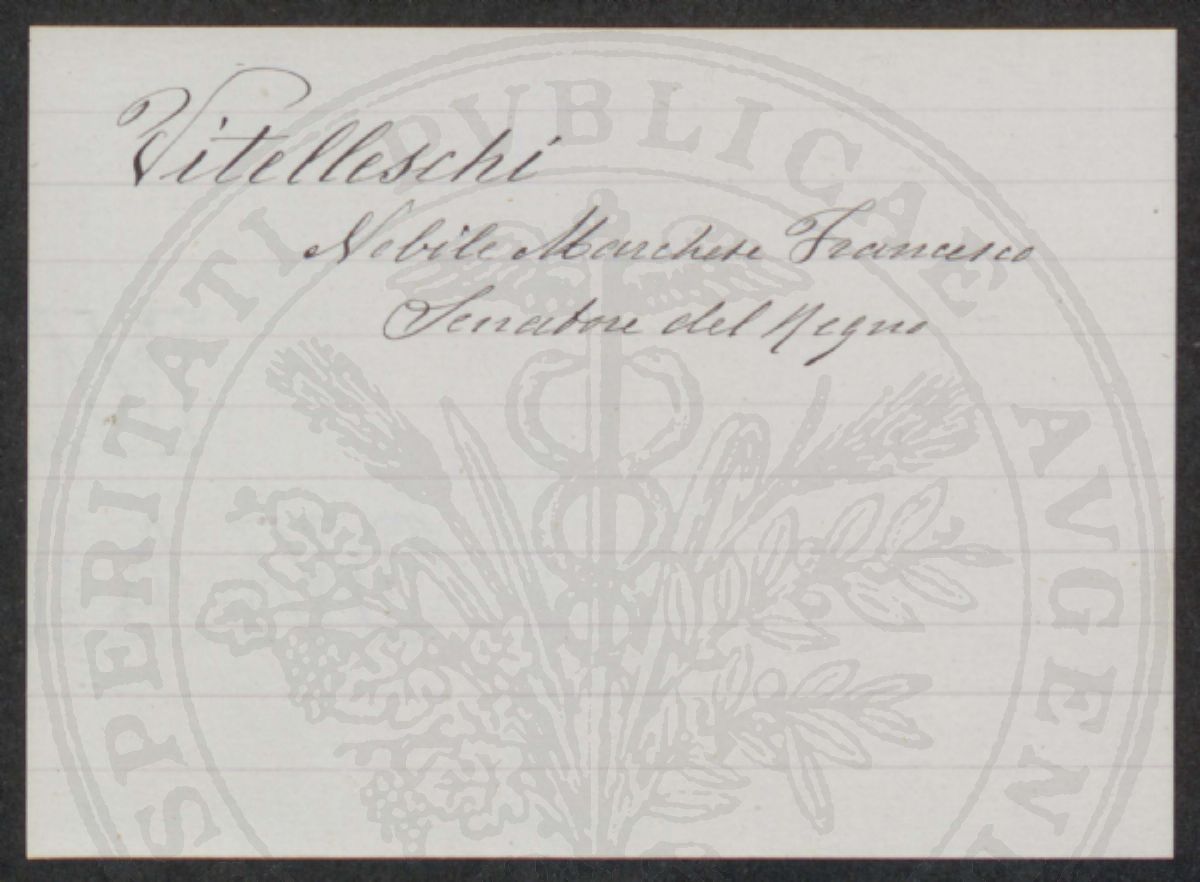 Vitelleschi
Nobile Marchese Francesco
Senatore del Regno
PROSPERITATI PUBLICAE AVGEN